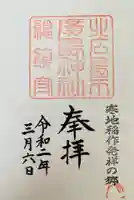 寒地稲作発祥の郷
北広島
廣島神社
奉拝
令和二年
三月六日